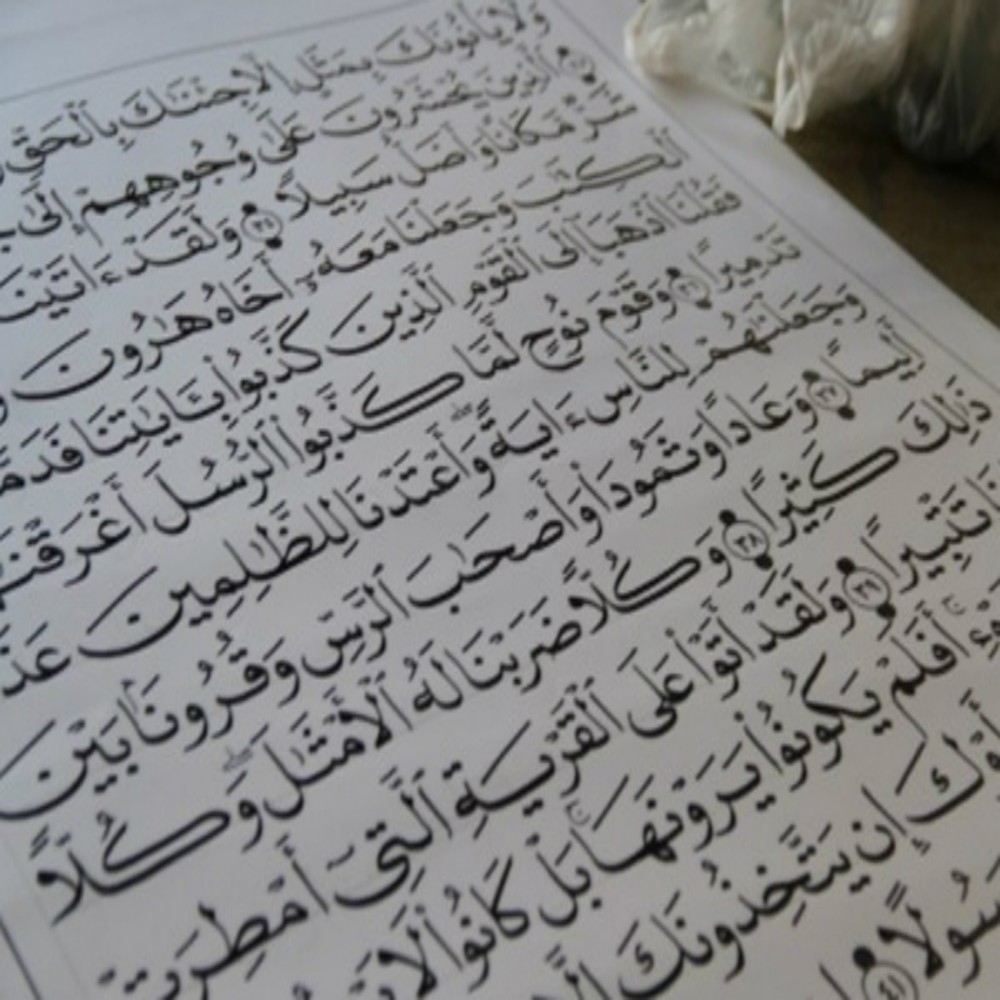 وَلَا يَأْتُونَكَ بِمَثَلٍ إِلَّا جِئْنَٰكَ بِٱلْحَقِّ
ٱلَّذِينَ يُحْشَرُونَ عَلَىٰ وُجُوهِهِمْ إِلَىٰ
شَرٌّ مَّكَانًا وَأَضَلُّ سَبِيلًا ٣٤ وَلَقَدْ ءَاتَيْنَا
ٱلْكِتَٰبَ وَجَعَلْنَا مَعَهُۥٓ أَخَاهُ هَٰرُونَ
فَقُلْنَا ٱذْهَبَآ إِلَى ٱلْقَوْمِ ٱلَّذِينَ كَذَّبُوا۟ بِـَٔايَٰتِنَا
تَدْمِيرًا ٣٦ وَقَوْمَ نُوحٍ لَّمَّا كَذَّبُوا۟ ٱلرُّسُلَ أَغْرَقْنَٰهُمْ
وَجَعَلْنَٰهُمْ لِلنَّاسِ ءَايَةً ۖ وَأَعْتَدْنَا لِلظَّٰلِمِينَ
أَلِيمًا ٣٧ وَعَادًا وَثَمُودَا۟ وَأَصْحَٰبَ ٱلرَّسِّ وَقُرُونًۢا بَيْنَ
ذَٰلِكَ كَثِيرًا ٣٨ وَكُلًّا ضَرَبْنَا لَهُ ٱلْأَمْثَٰلَ ۖ وَكُلًّا
تَتْبِيرًا ٣٩ وَلَقَدْ أَتَوْا۟ عَلَى ٱلْقَرْيَةِ ٱلَّتِىٓ أُمْطِرَتْ
أَفَلَمْ يَكُونُوا۟ يَرَوْنَهَا ۚ بَلْ كَانُوا۟ لَا
إِن يَتَّخِذُونَكَ إِلَّا
رَسُولًا ٤١